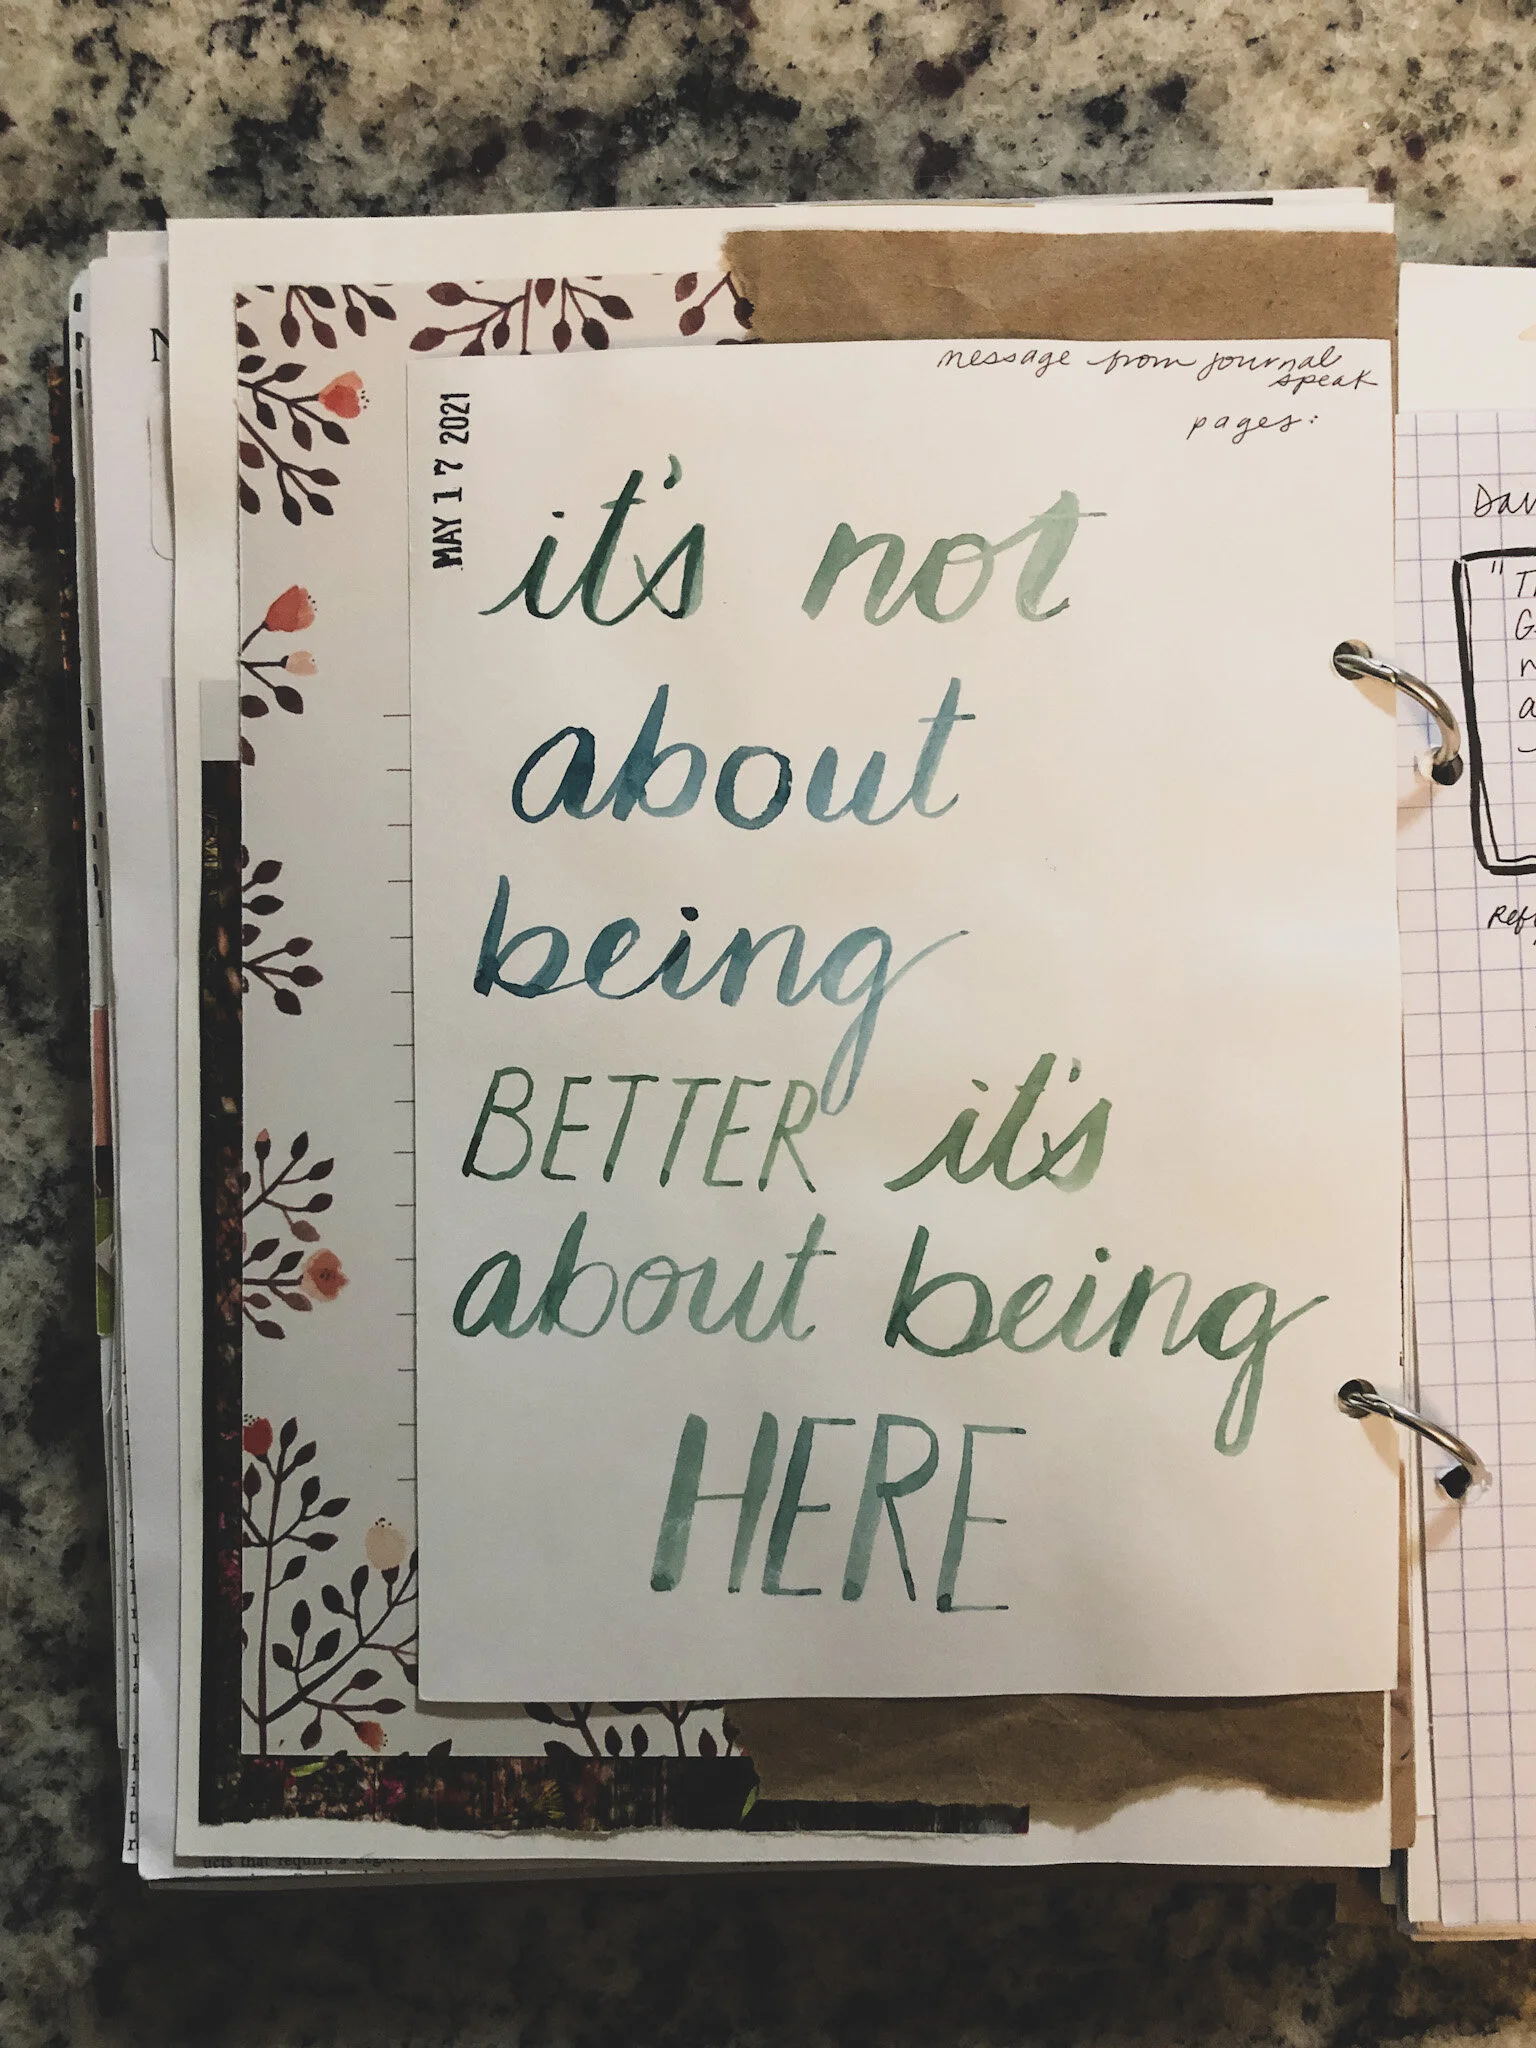 message from journal
speak
pages:
MAY 17 2021
it's not
about
being
BETTER it's
about being
HERE
"